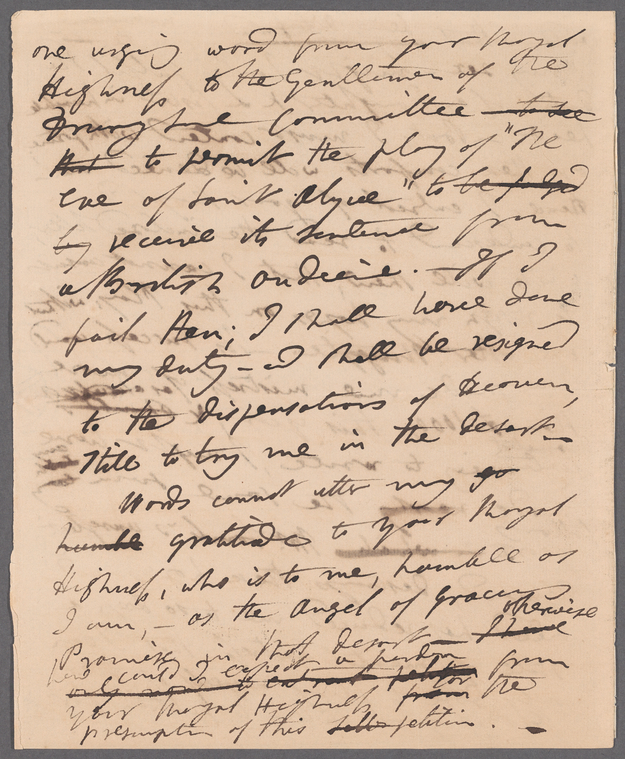 one urging word from your Royal
Highness to the Gentlemen of the
Drury Lane Committee to be
that to permit the play of "The
Eve of Saint Alyce" to be judged
by receive its sentence from
a British audience. — If I
fail then; I shall have done
my duty — I shall be resigned
to the dispensations of Heaven,
Still to try me in the desart —
Words cannot utter my go
humble gratitude to your Royal
Highness, who is to me, humble as
I am, — as the Angel of Graces
Promise in that desart — I have otherwise
how could I expect a pardon from
your Royal Highness from for the
presumption of this petition. —